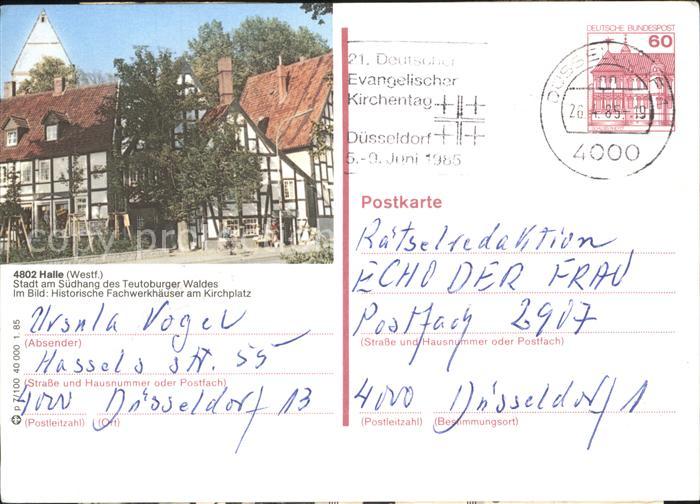 DEUTSCHE BUNDESPOST
60
21. Deutscher
Evangelischer
Kirchentag
Düsseldorf
5.-9. Juni 1985
4000
Postkarte
4802 Halle (Westf.)
Stadt am Südhang des Teutoburger Waldes
Im Bild: Historische Fachwerkhäuser am Kirchplatz
p 7/100 40 000 1. 85
Ursula Vogel
(Absender)
Hassels str. 55
(Straße und Hausnummer oder Postfach)
4000 Düsseldorf 13
(Postleitzahl) (Ort)
Rätselredaktion
ECHO DER FRAU
Postfach 2907
(Straße und Hausnummer oder Postfach)
4000 Düsseldorf 1
(Postleitzahl) (Bestimmungsort)